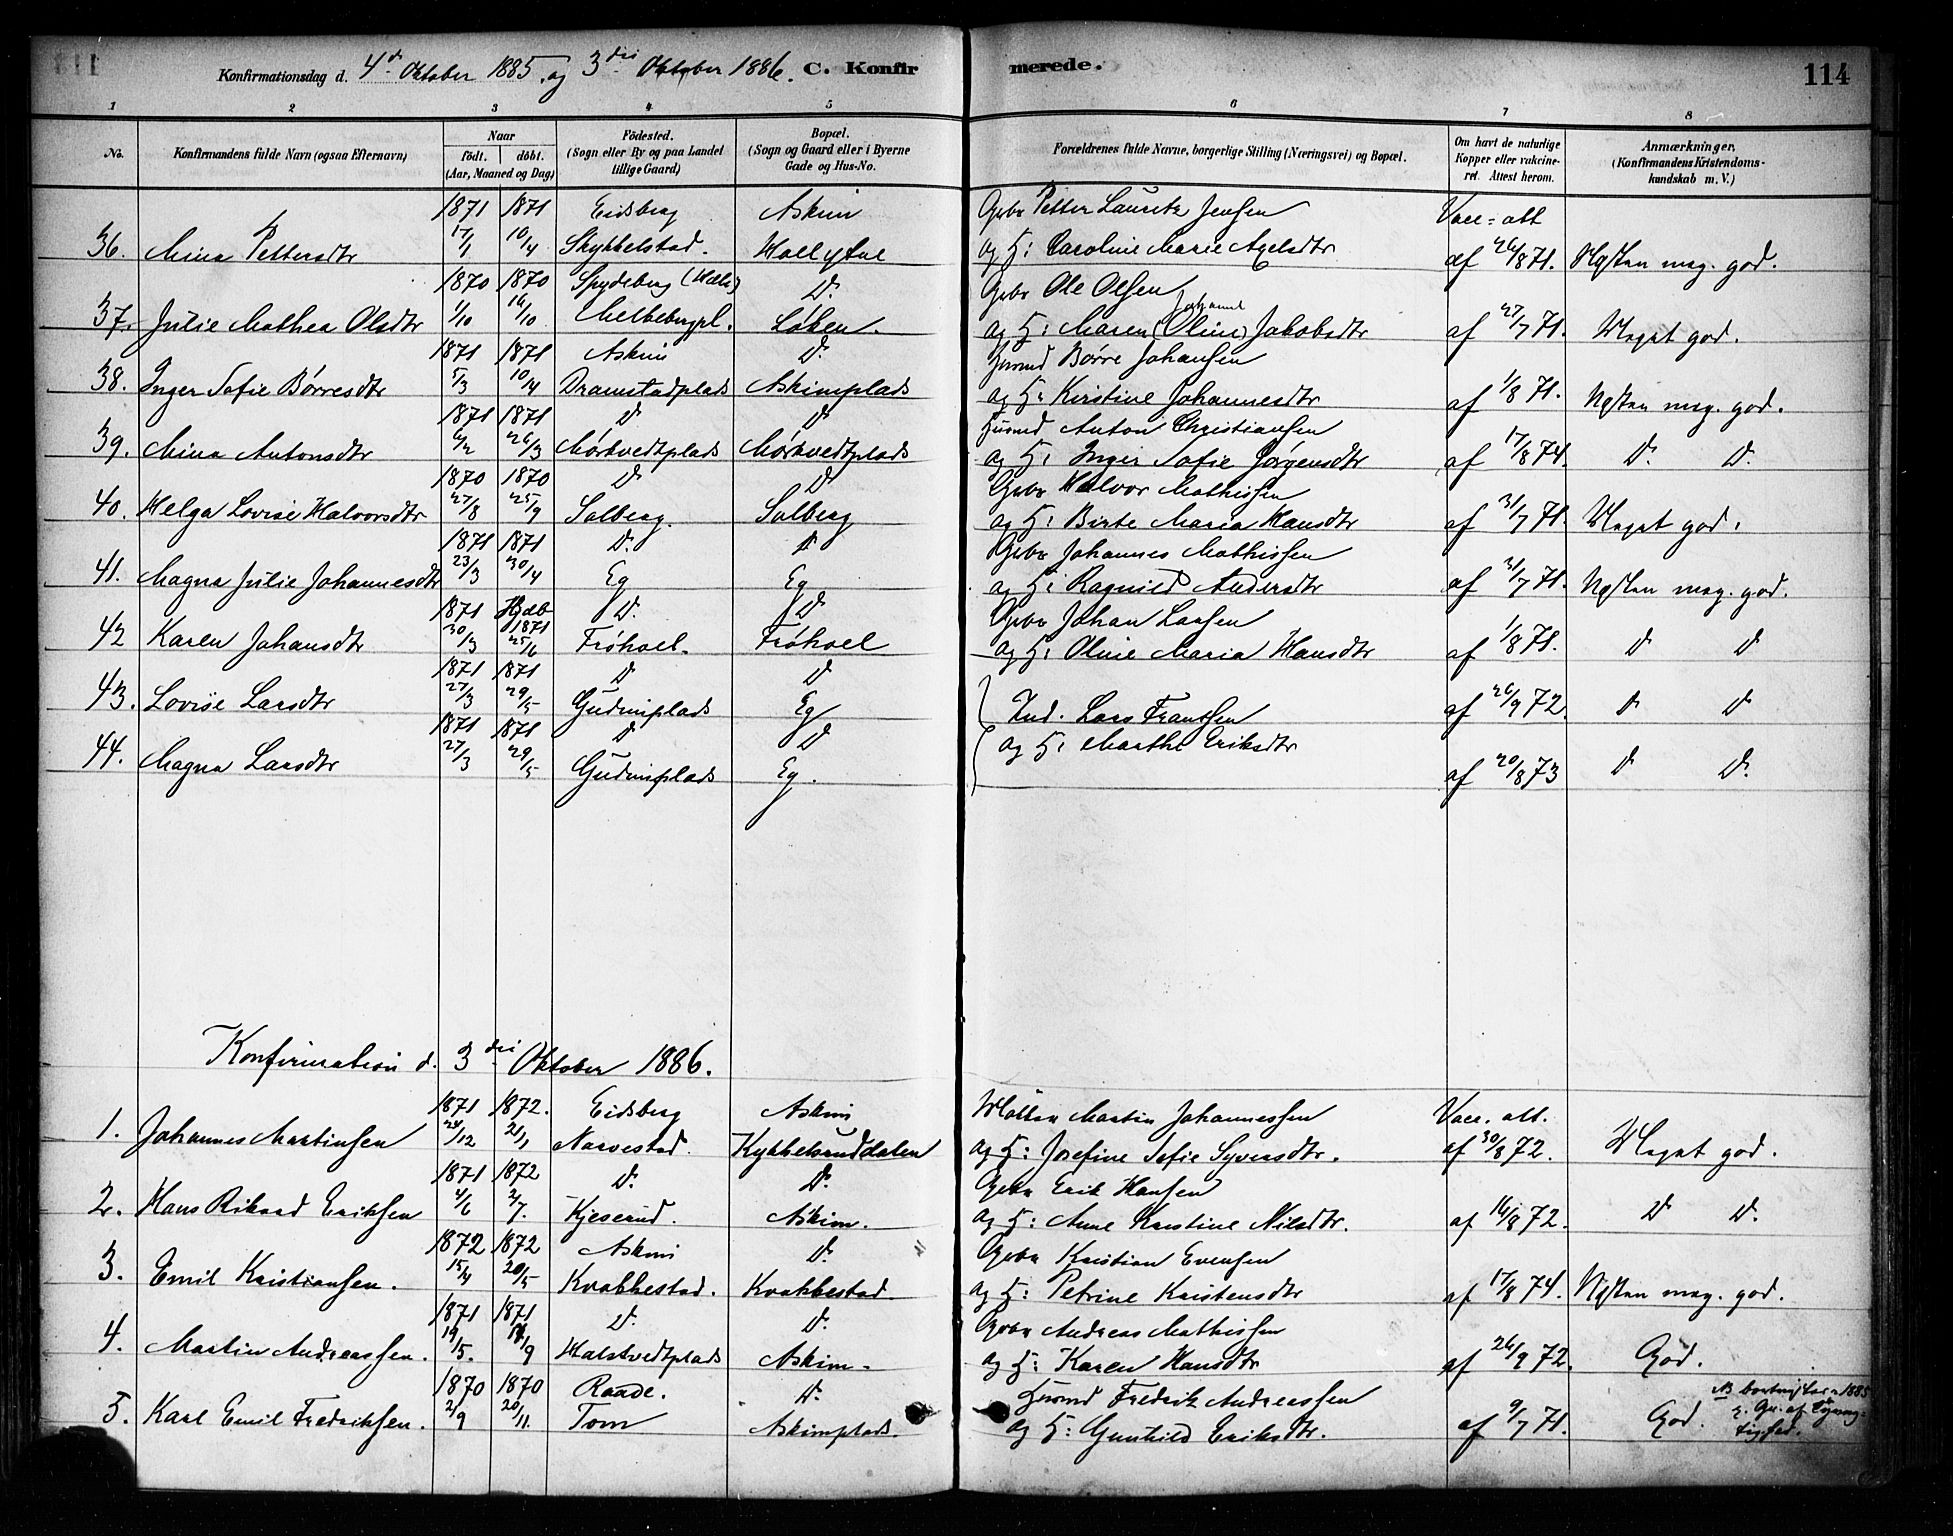 Konfirmationsdag d. 4d Oktober 1885 og 3dii Oktober 1886. C. Konfirmerede. 114
1 2 3 4 5 6 7 8
No. Konfirmandens fulde Navn (ogsaa Efternavn) Naar födt. döbt. (Aar, Maaned og Dag) Födested. (Sogn eller By og paa Landet tillige Gaard) Bopæl. (Sogn og Gaard eller i Byerne Gade og Hus-No. Forældrenes fulde Navne, borgerlige Stilling (Næringsvei) og Bopæl. Om havt de naturlige Kopper eller vakcineret. Attest herom. Anmærkninger. (Konfirmandens Kristendomskundskab m. V.)
1871 1871 Eidsberg Askim Gbr Petter Lauritz Jensen Vacc. att
36. Mina Pettersdtr 17/1 10/4 Skykkelstad. og H: Caroline Marie Axelsdtr af 26/8 71. Næsten meg. god.
1870 1870 Spydeberg D. Gbr Ole Olsen
37. Julie Mathea Olsdtr 1/10 16/10 Løken. Johanne
og H: Maren (Oline) Jakobsdtr af 27/7 71. Meget god.
1871 1871 Askim D. Husmd Børre Johansen
38. Inger Sofie Børresdtr 5/3 10/4 Dramstadplads Askimplads og H: Kirstine Johannesdtr af 1/8 71. Næsten meg. god.
1871 1871 D D Husmd Anton Christiansen
39. Mina Antonsdtr 6/2 26/3 Mørkvedtplads Mørkvedtplads og H: Inger Sofie Jørgensdtr af 17/8 74. D. D.
1870 1870 D D Gbr Halvor Mathissen
40. Helga Lovise Halvorsdtr 27/8 25/9 Solberg. Solberg og H: Birte Maria Hansdtr af 31/7 71. Meget god.
1871 1871 D. D Gbr Johannes Mathissen
41. Magna Julie Johannesdtr 23/3 30/4 Eg Eg og H: Ragnild Andersdtr af 31/7 71. Næsten meg. god.
1871 Hjdb 1871 D. D Gbr Johan Larsen
42 Karen Johansdtr 30/3 25/6 Frøhoel. Frøhoel og H: Oline Maria Hansdtr af 1/8 71. D D
1871 1871 D D
43. Lovise Larsdtr 27/3 29/5 Gudimplads Eg Ind. Lars Frantsen af 26/9 72. D D
1871 1871 D D og H: Marthe Eriksdtr
44. Magna Larsdtr 27/3 29/5 Gudimplads Eg. af 20/8 73 D D.
Konfirmation d. 3dii Oktober 1886.
1871 1872. Eidsberg Askim Martin Johannessen Vacc. att.
1. Johannes Martinsen 24/12 21/1 Narvestad. Kykkelsruddalen og H: Josefine Sofie Syversdtr. af 30/8 72. Meget god.
1871 1872 D. D. Gbr Erik Hansen
2. Hans Rikard Eriksen 4/6 2/7. Kjeserud. Askim. og H: Anne Kristine Nilsdtr. af 16/8 72. D D.
1872 1872 Askim D. Gbr Kristian Evensen
3. Emil Kristiansen. 15/4 20/5 Kvakkestad. Kvakkestad og H: Petrine Kristensdtr af 17/8 74. Næsten meg. god.
1871 1871 D. D. Gbr Andreas Mathissen
4. Martin Andreassen. 19/5. Halstvedtplads Askim. og H: Karen Hansdtr af 26/9 72. God.
1870 1870 Raade. D. Husmd Fredrik Andreassen NB 1885
5. Karl Emil Fredriksen. 2/9 20/11. Tom Askimplads. og H: Gunhild Eriksdtr. af 9/7 71. God.